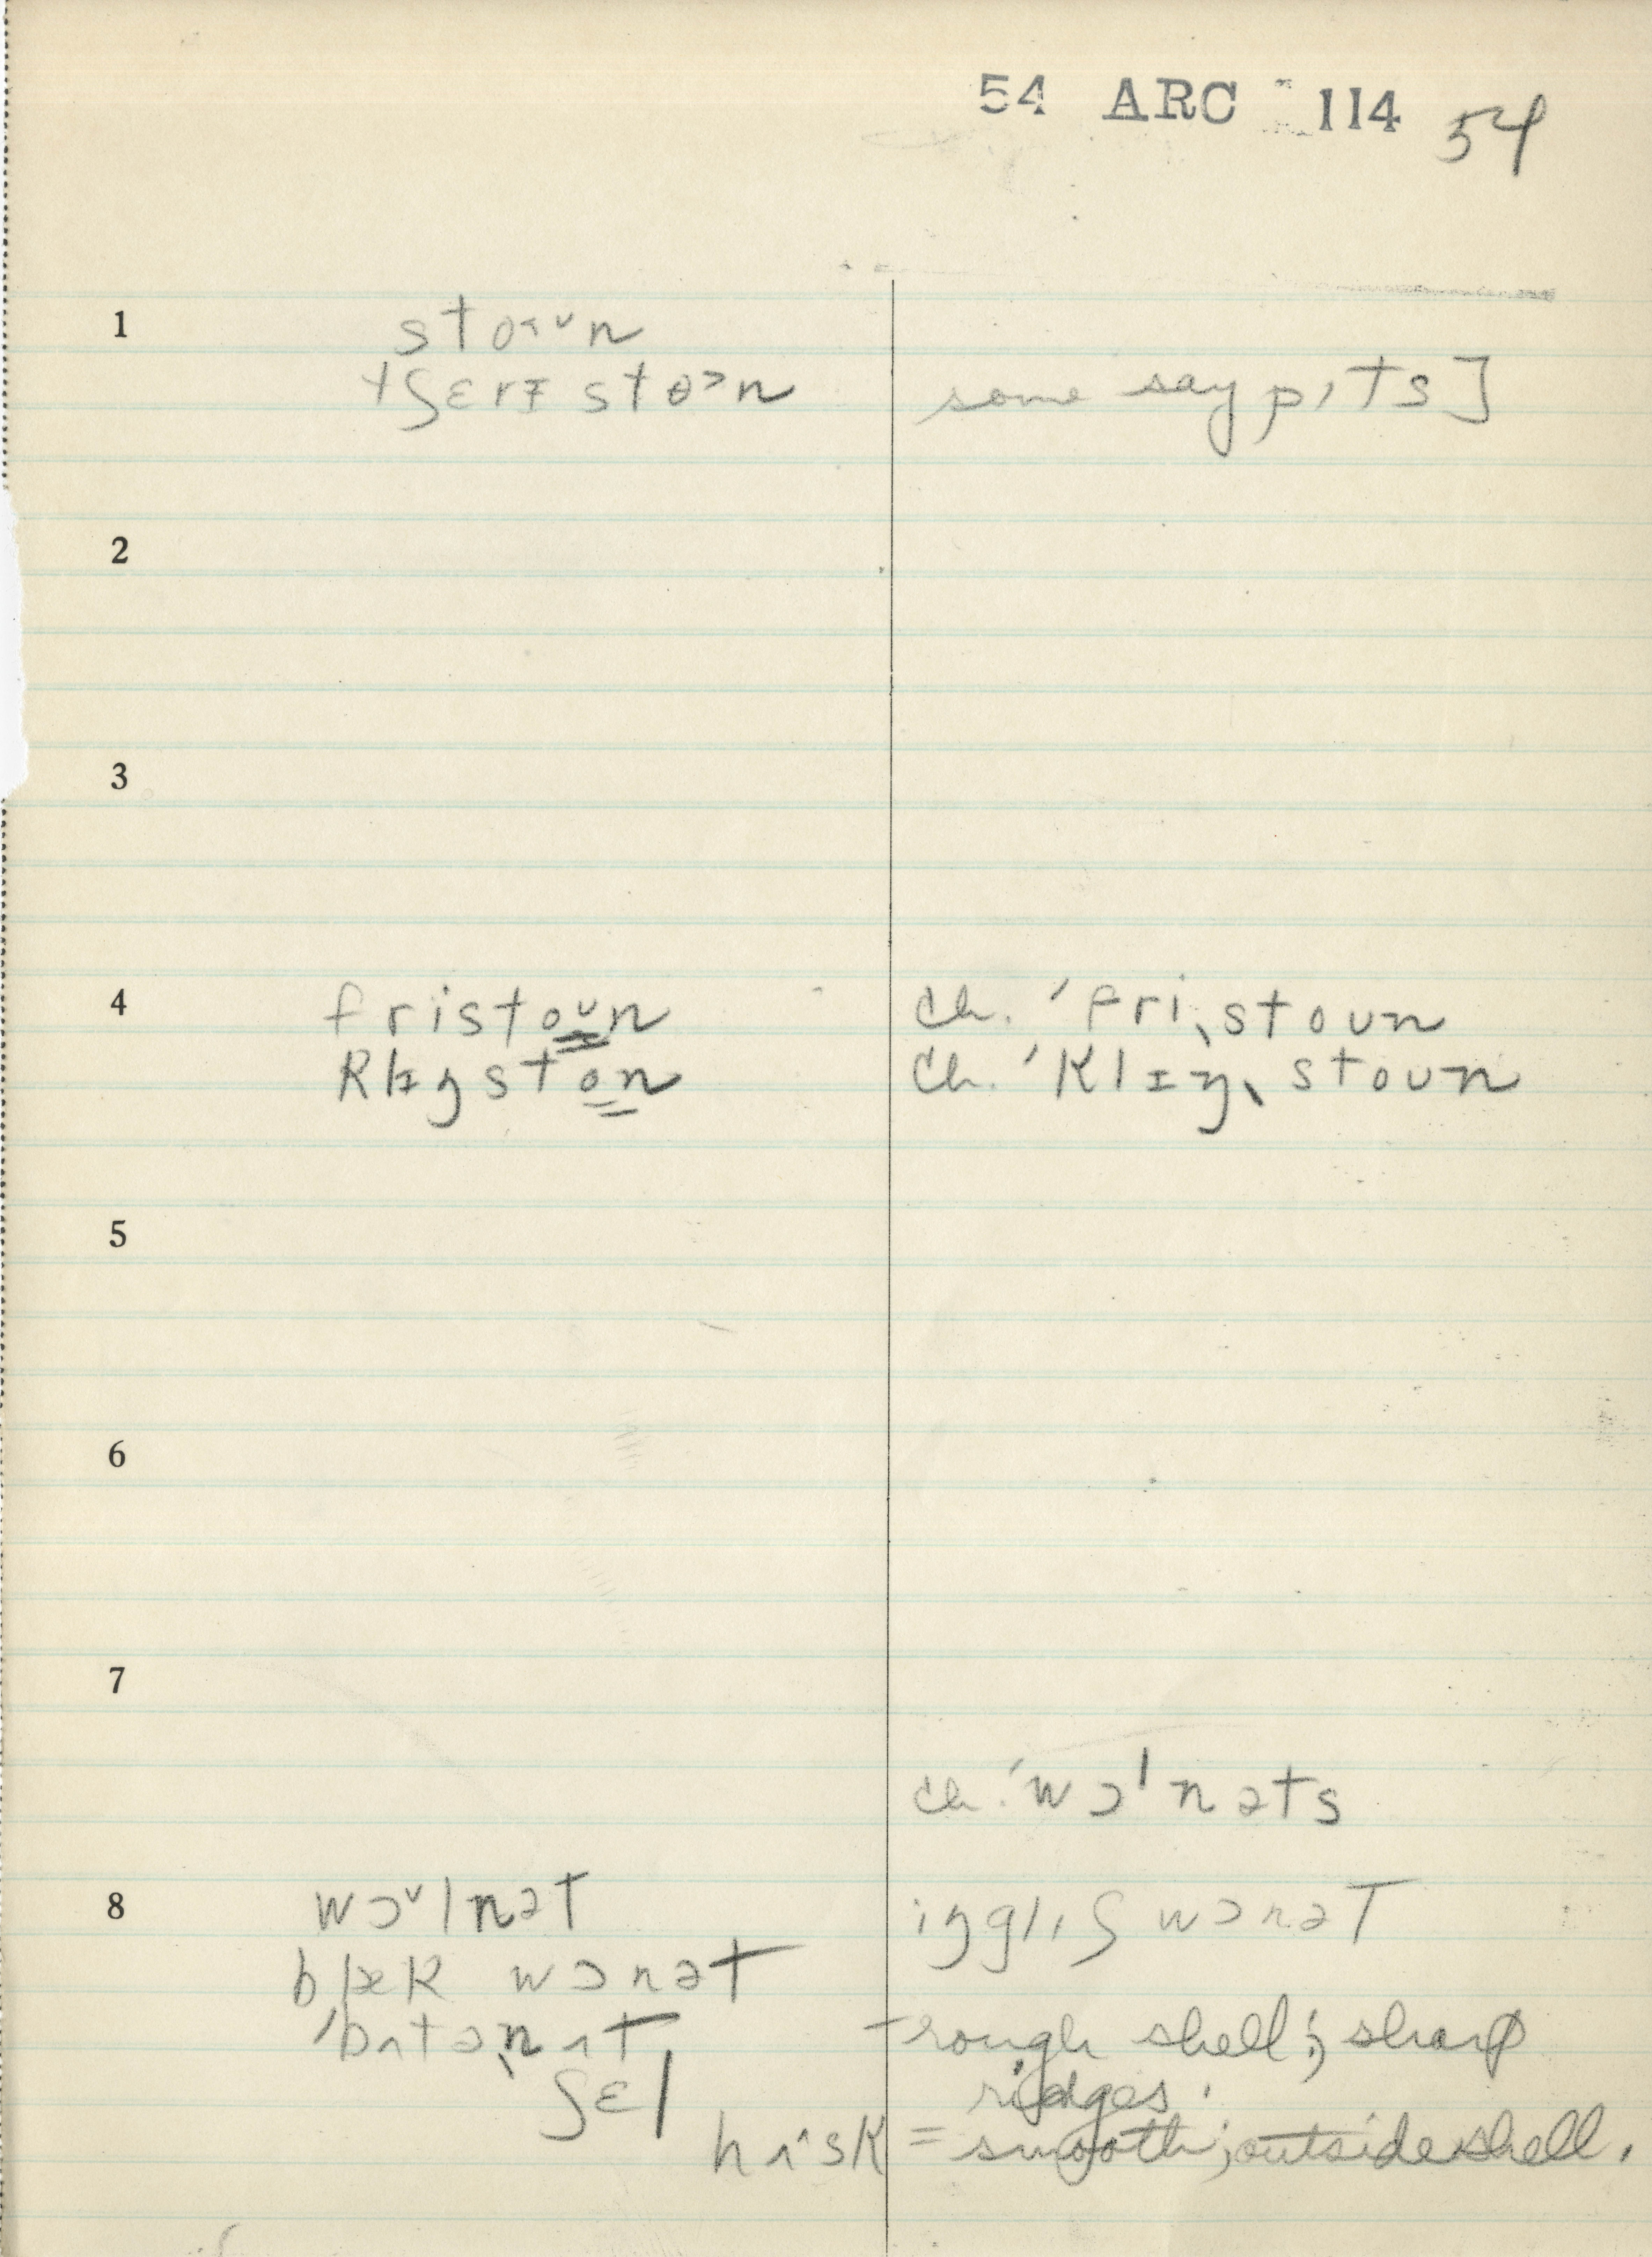 54 ARC 114 54
1 stoʌᵛn
tʃɛrɪ stɵ˃n some say pɪts]
2
3
4 fristoᴜn ch. ˈfriˌstoᴜn
klɪŋston ch. ˈklɪŋˌstoᴜn
5
6
7
ch. ˈwɔlnəts
8 wɔᵛlnət ɪŋglɪʃ wɔnət
blæk wɔnət
ˈbʌtəˌnʌt rough shell; sharp
ʃɛl ridges.
hʌ^sk = smooth; outside shell.